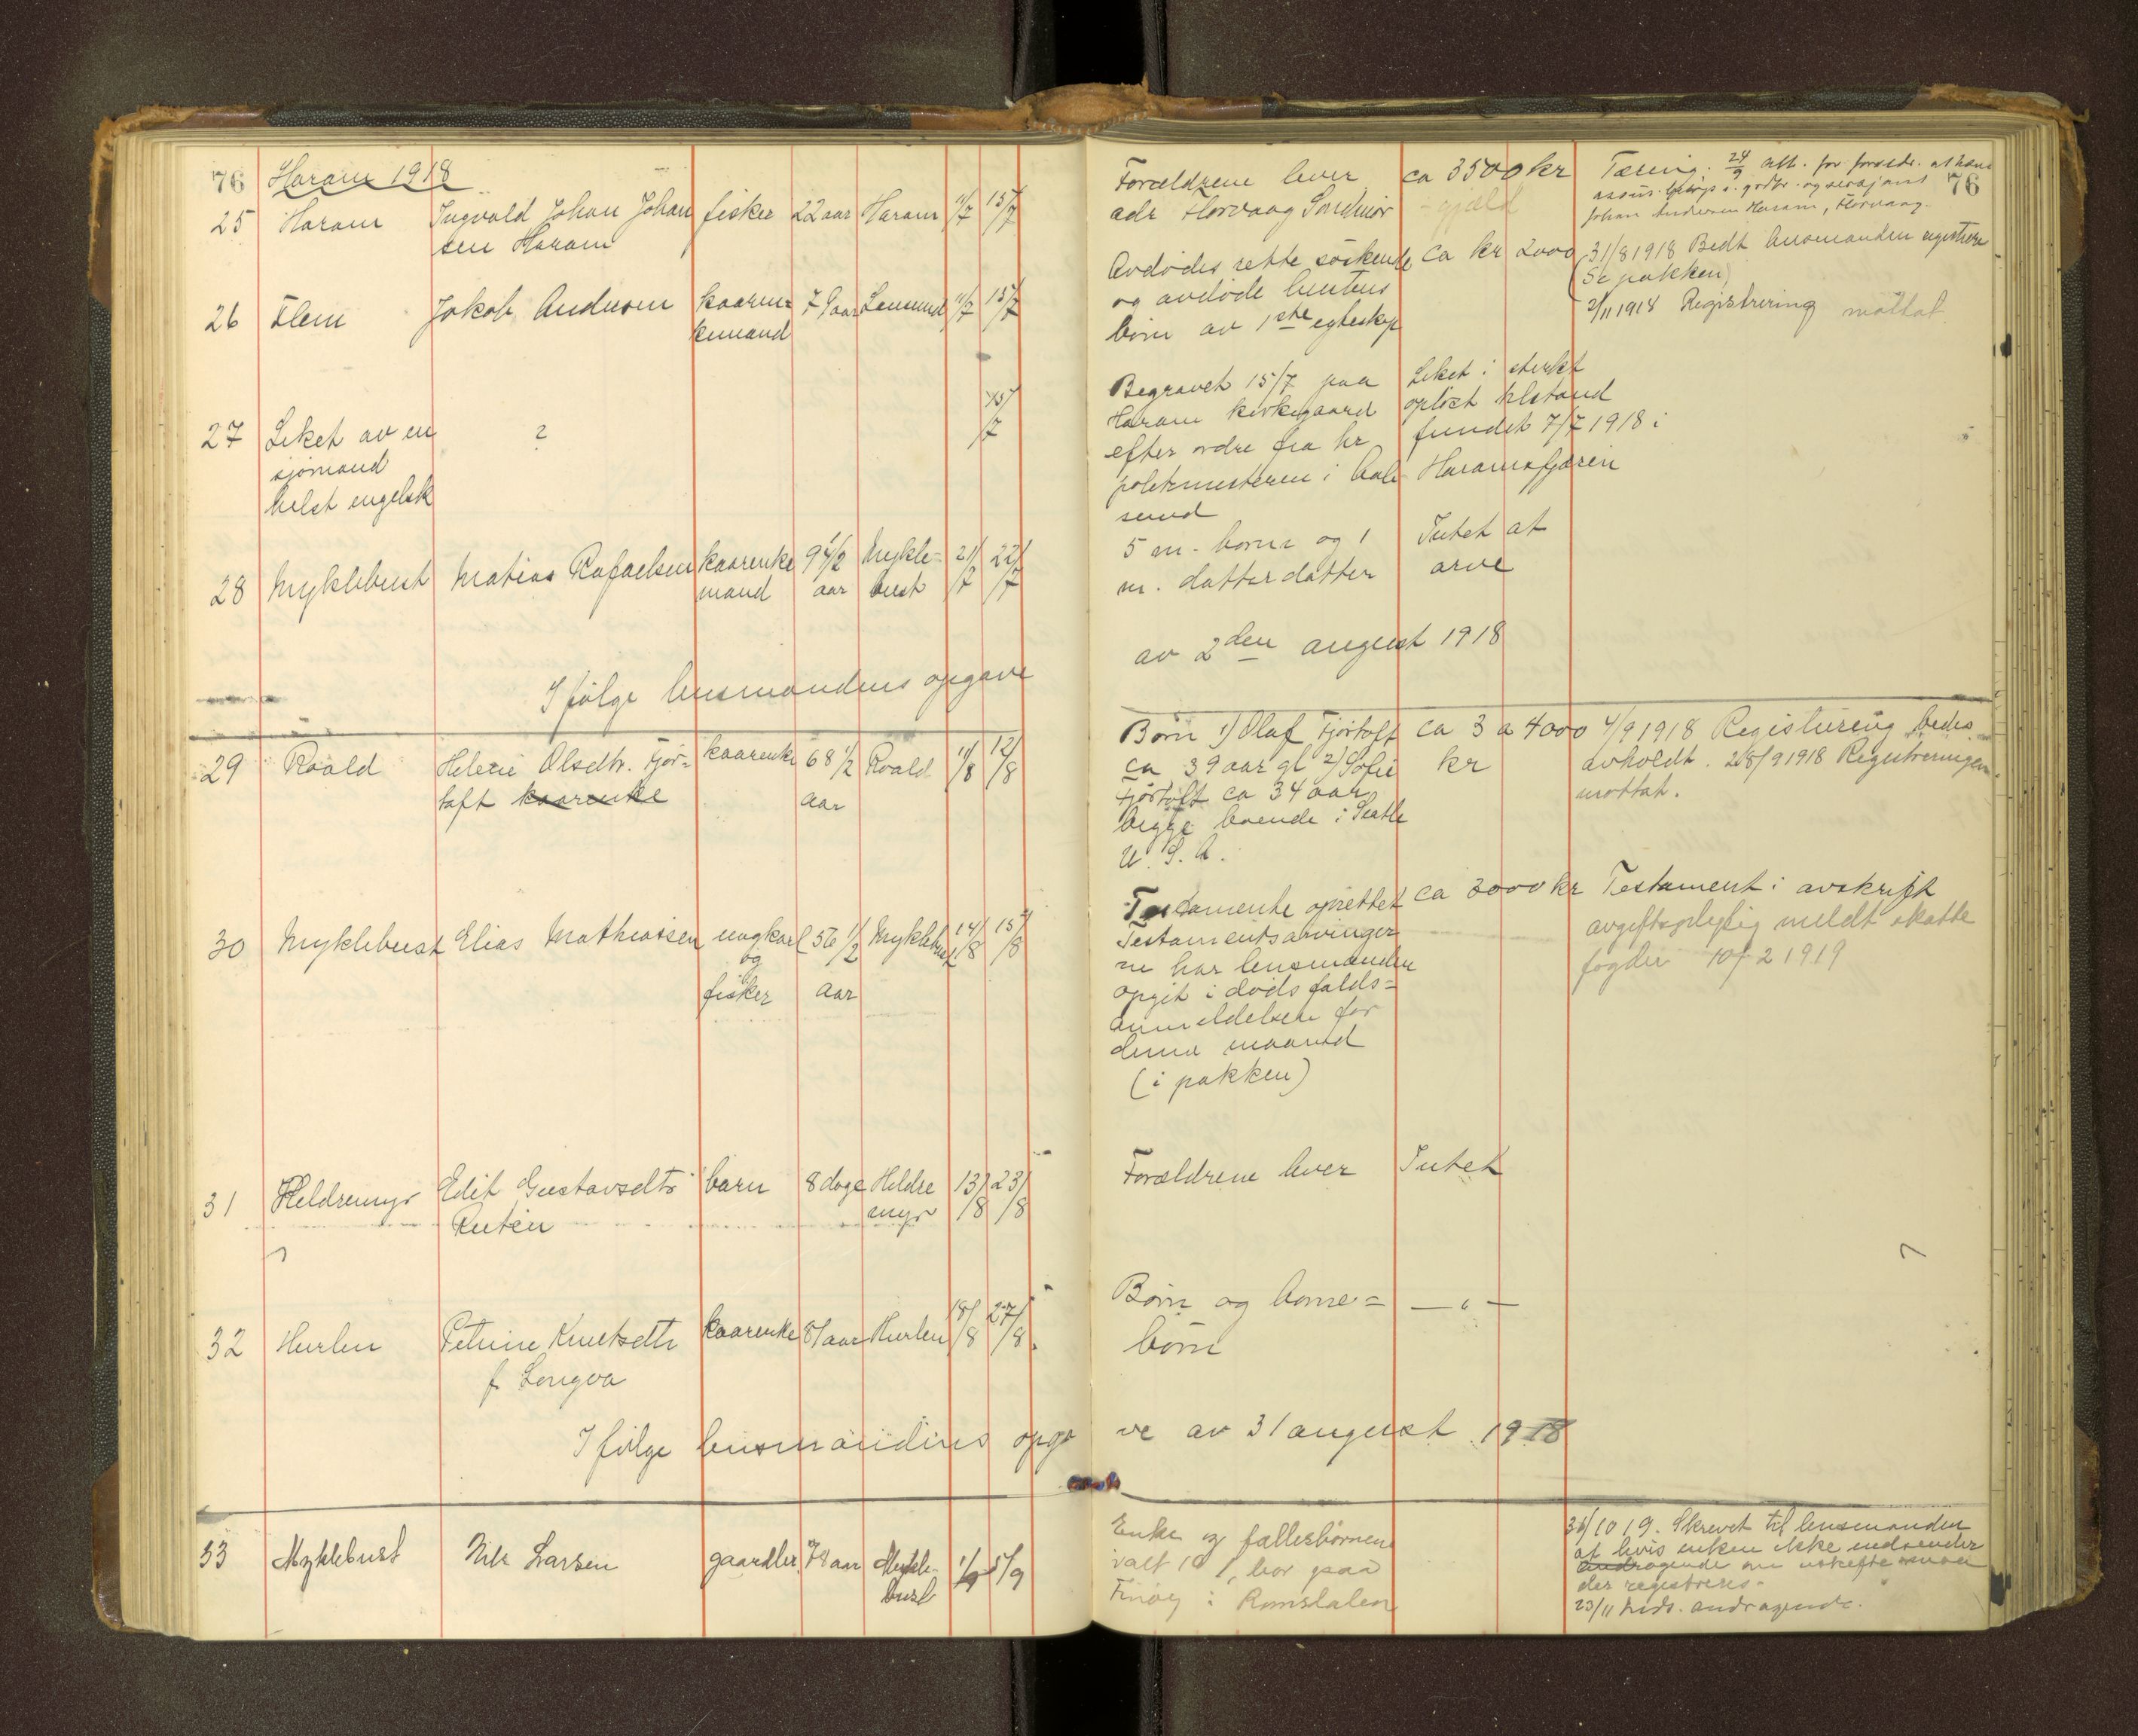 76 Haram 1918
25 Haram Ingvald Johan Johan fisker 22 aar Haram 11/7 15/7
sen Haram
26 Flem Jakob Andersen kaaren= 79 aar Longsund 11/7 15/7
kemand
27 Liket av en ? 15/7
sjømand
helst engelsk
28 Myklebust Matias Rafaelsen kaarenke 94 1/2 Mykle- 21/7 22/7
mand aar bust
Ifølge lensmandens opgave
29 Roald Helene Olsdtr. Fjør= kaarenke 68 1/2 Roald 1/8 12/8
toft kaarenke aar
30 Myklebust Elias Mathiassen ungkarl 56 1/2 Myklebust 14/8 15/8
og
fisker aar
31 Heldremyr Edit Gustavsdtr barn 8 dage Heldre 13/8 23/8
Rutin myr
32 Hurlen Petrine Knutsdtr kaarenke 81 aar Hurlen 18/8 27/8
f. Longva
Ifølge lensmandens opga
33 Myklebust Nils Larsen gaardbr. 78 aar Mykle- 1/9 5/9
bust
Forældrene lever ca 3500 kr Tæring. 24/9 att. for forældr. at hæve
adr Hovaag Søndmør - gjæld
Johan Andersen Haram, 76
Avdødes rette søskende ca kr 2000 31/8 1918 Bedt lensmanden registrere
og avdøde hustrus (Se pakken)
børn av 1ste egteskap 2/11 1918 Registrering mottat
Begravet 15/7 paa Liket i sterkt
Haram kirkegaard opløst tilstand
efter ordre fra hr fundet 7/7 1918 i
politimesteren i Aale Haramsfjæren
sund
5 m. børn og 1 Intet at
m. datterdatter arve
av 2den august 1918
Børn 1) Olaf Fjørtoft ca 3 a 4000 4/9 1918 Registrering bedes
ca 39 aar gl 2) Sofie kr avholdt. 28/9 1918 Registreringen
Fjørtoft ca 34 aar mottat.
begge boende i Seatle
U. S. A.
Testamente oprettet ca 3000 kr Testament i avskrift
Testamentsarvinger avgiftspligtig meldt skatte
ne har lensmanden fogden 10/2 1919
opgit i dødsfalds=
anmeldelsen for
denne maaned
(i pakken)
Forældrene lever Intet
Børn og barne= — " —
børn
ve av 31 august 1918
Enke og fællesbørnene 31/10 19. Skrevet til lensmanden
hvoralt 10, bor paa at hvis enken ikke indsender
Finøy i Romsdalen andragende om uskifte maa
der registreres.
23/11 inds. andragende.